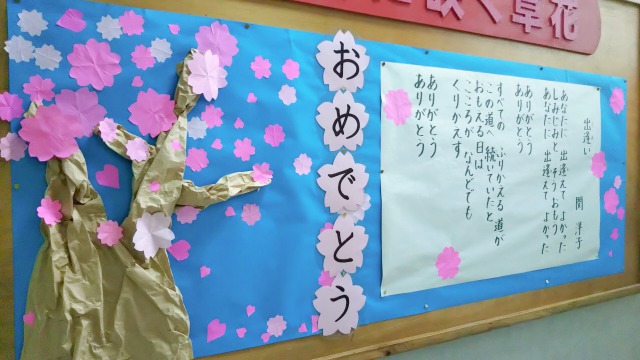 に咲く草花
おめでとう
出逢い
関 洋子
あなたに 出逢えて よかった
しみじみと そう おもう
あなたに 出逢えて よかった
ありがとう
ありがとう
すべての ふりかえる 道が
この道へ 続いていたと
おもえる日は
こころが なんどでも
くりかえす
ありがとう
ありがとう